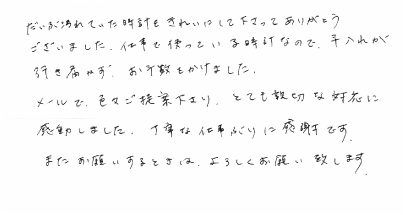 だいぶ汚れていた時計をきれいにして下さってありがとう
ございました。仕事で使っている時計なので、手入れが
行き届かず、お手数をかけました。
メールで、色々ご提案下さり、とても親切な対応に
感動しました。丁寧な仕事ぶりに感謝です。
またお願いするときは、よろしくお願い致します。